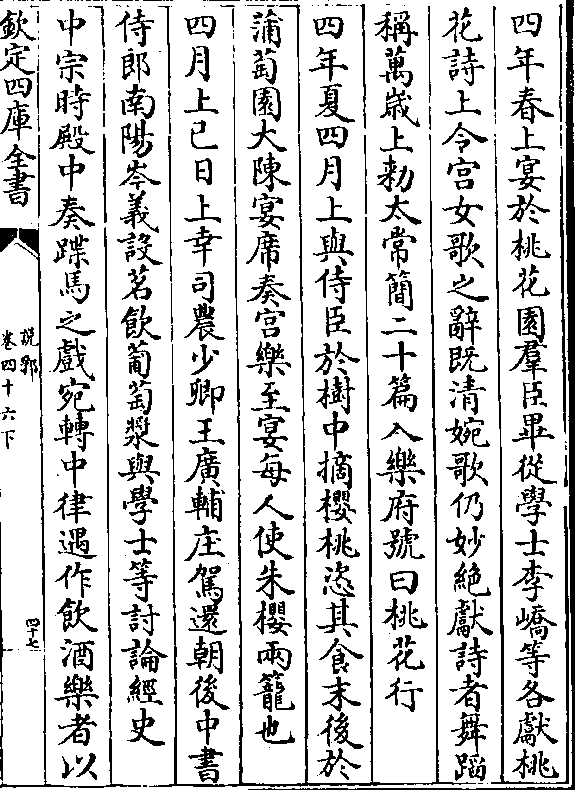 四年春上宴於桃花園羣臣畢從學士李嶠等各獻桃
花詩上令宫女歌之辭既清婉歌仍妙絶獻詩者舞蹈
稱萬嵗上勑太常簡二十篇入樂府號曰桃花行
四年夏四月上與侍臣於樹中摘櫻桃恣其食末後於
蒲萄園大陳宴席奏宫樂至宴每人使朱櫻兩籠也
四月上巳日上幸司農少卿王廣輔庄駕還朝後中書
侍郎南陽岑義設茗飲葡萄漿與學士等討論經史
中宗時殿中奏蹀馬之戲宛轉中律遇作飲酒樂者以
欽定四庫全書
說郛
卷四十六下
四十七